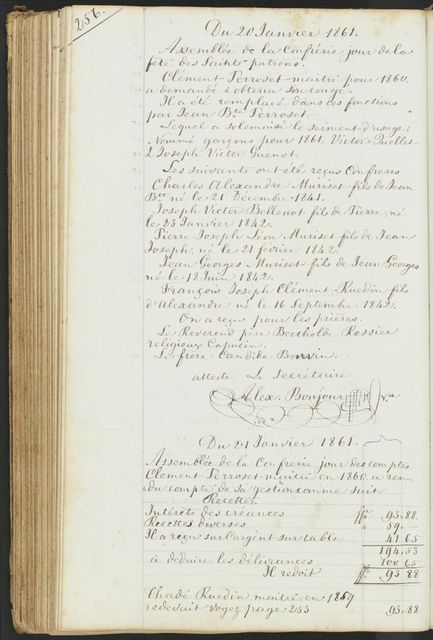 256.
Du 20 Janvier 1861.
Assemblée de la Confrérie jour de la
fête des Saints patrons.
Clément Perroset maitre pour 1860
a demandé & obtenu son congé.
Il a été remplacé dans ces fonctions
par Jean Bte Perroset.
Lequel a solemnisé le serment d'usage.
Nommé garçons pour 1861. Victor Quellet
& Joseph Victor Guenot.
Les suivants ont été reçus Confreres
Charles Alexandre Muriset fils de Jean
Bte né le 21 Décembre 1841.
Joseph Victor Bellenot fils de Pierre, né
le 23 Janvier 1842.
Pierre Joseph Léon Muriset fils de Jean
Joseph, né le 21 février 1842.
Jean Georges Muriset fils de Jean Georges
né le 18 Juin 1842.
François Joseph Clément Ruedin fils
d'Alexandre né le 16 Septembre 1842.
On a reçu pour les prières.
Le Reverend père Berthold Rossier
religieux Capucin.
Le frère Candide
atteste Le Secrétaire
Alex: Bonjour
Du 21 Janvier 1861.
Assemblée de la Confrérie jour des comptes
Clément Perroset maitre en 1860, a ren-
du compte de sa gestion comme suit.
Recettes.
Intérêts des créances 93.88
Recettes diverses 59.
Il a reçu sur l'argent sur table 41 65
194,53
à déduire les délivrances 100 65
Il redoit 93 88
Chadé Ruedin maitre en 1859
redevait voyez page 253 93.88